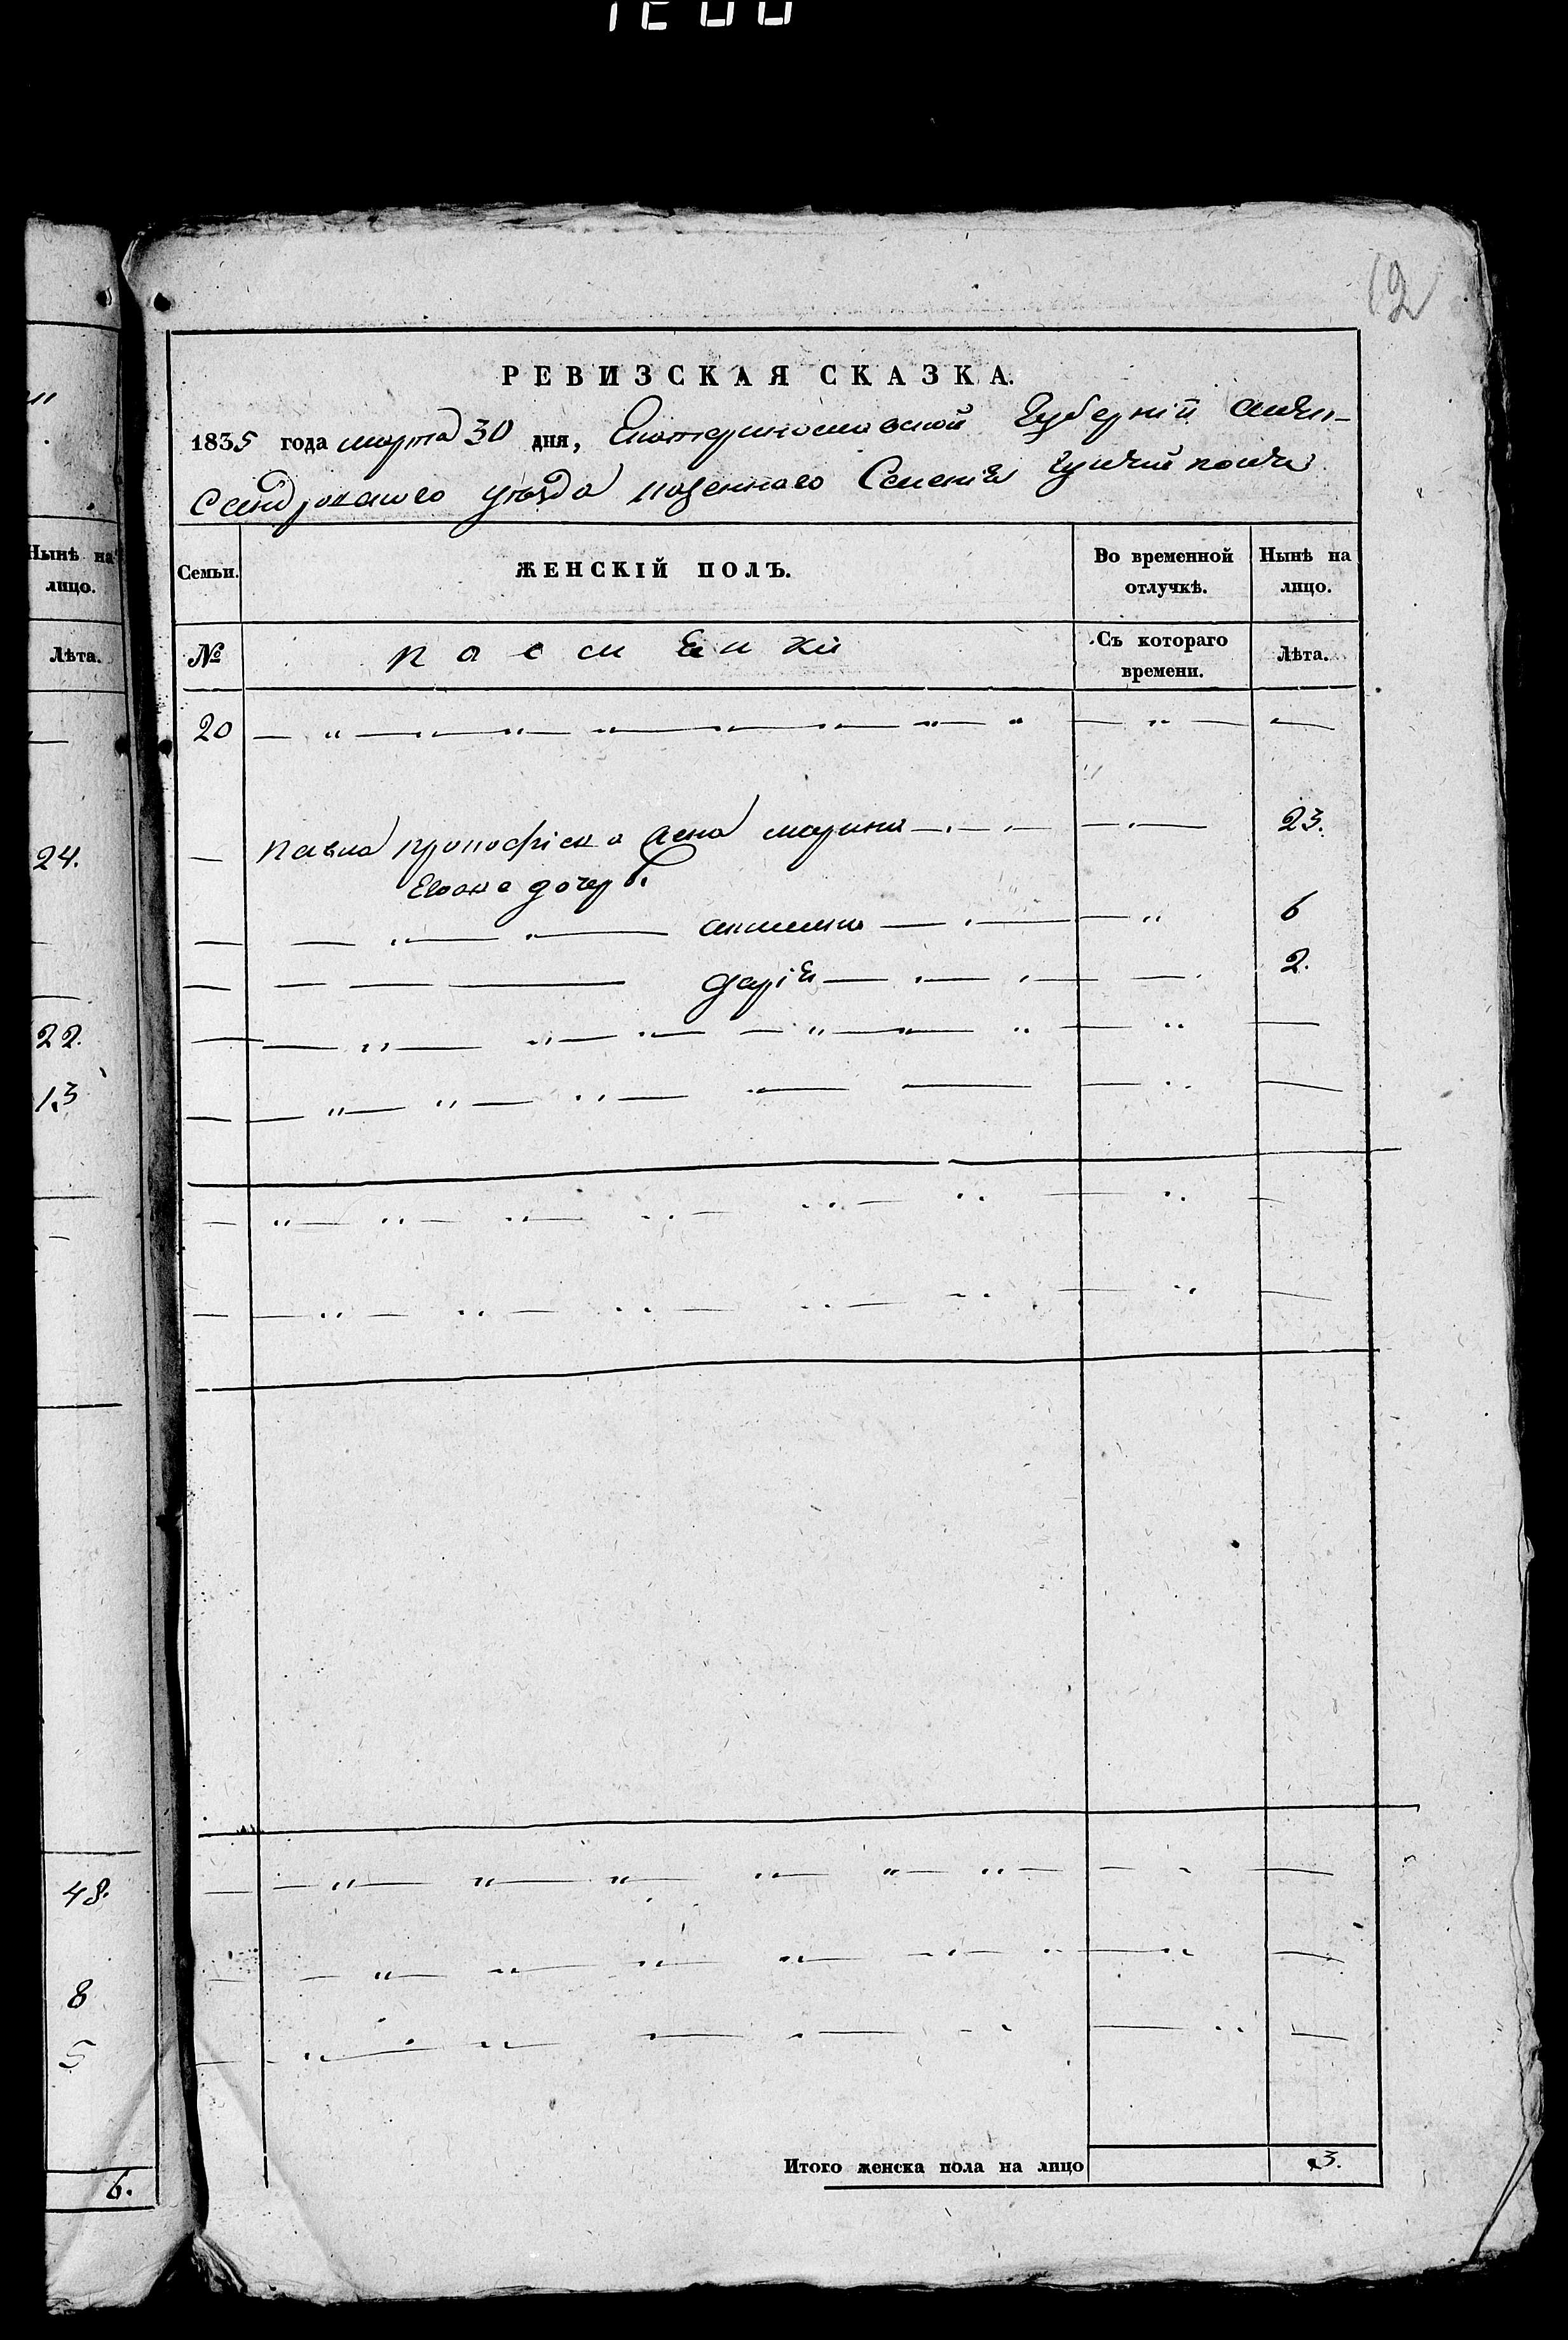 12
РЕВИЗСКАЯ СКАЗКА.
1835 года марта 30 дня, Екатеринославской Губерніи Алек-
сандровского уезда казенного Селенія Гуляйполя
Нынѣ на лицо.
Лѣта.
24.
22.
13
48.
8
5
6.
Семьи. ЖЕНСКІЙ ПОЛЪ. Во временной отлучкѣ. Нынѣ на лицо.
№ Съ котораго времени. Лѣта.
20 — " — " — " — " — " —
— Павла Прокофіева жена Марина — 23.
Евоже дочерь
— " — Акилина — 6
— — — Дарія — 2.
Итого женска пола на лицо 3.